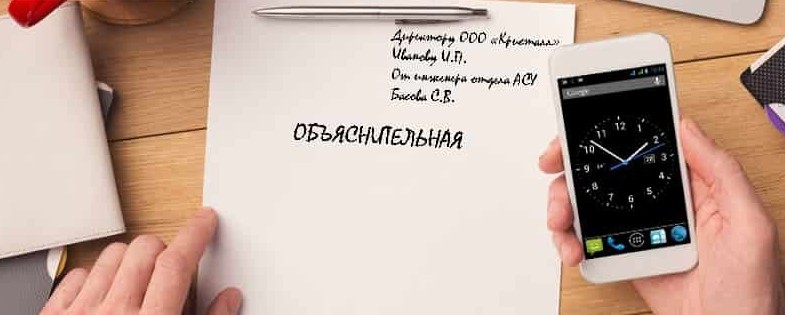 Директору ООО «Кристалл»
Иванову И.П.
От инженера отдела АСУ
Басова С.В.
ОБЪЯСНИТЕЛЬНАЯ
Google
12
1
2
3
4
5
6
7
8
9
10
11